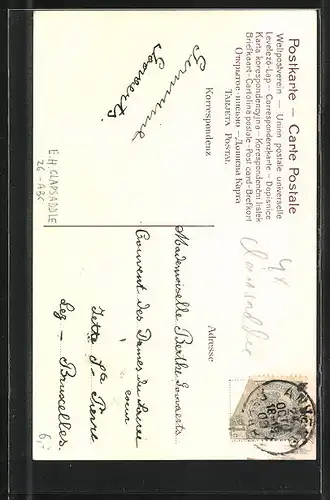 Postkarte — Carte Postale
Weltpostverein — Union postale universelle
Levelező-Lap — Correspondenzkarte — Dopisnice
Karta korespondencyjna — Korespondenční lístek
Briefkaart — Cartolina postale — Post card — Brefkort
Открытое письмо — Дописна Карта
Tarjeta Postal
Korrespondenz
Germaine
Govaerts
E.H. CLAPSADDLE
26 - ABC
Adresse
Clapsaddle
Mademoiselle Berthe Govaerts
Couvent des Dames du Sacré
cœur
Jette St Pierre
Lez — Bruxelles.
6,-